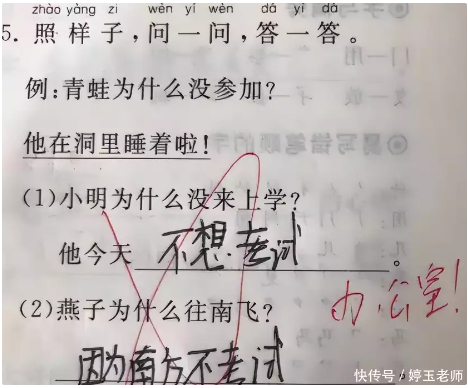 zhào yàng zi wèn yi wèn dá yi dá
5. 照样子,问一问,答一答。
例:青蛙为什么没参加?
他在洞里睡着啦!
(1)小明为什么没来上学?
他今天不想考试。
(2)燕子为什么往南飞?
办公室!
因为南方不考试
快传号/婷玉老师